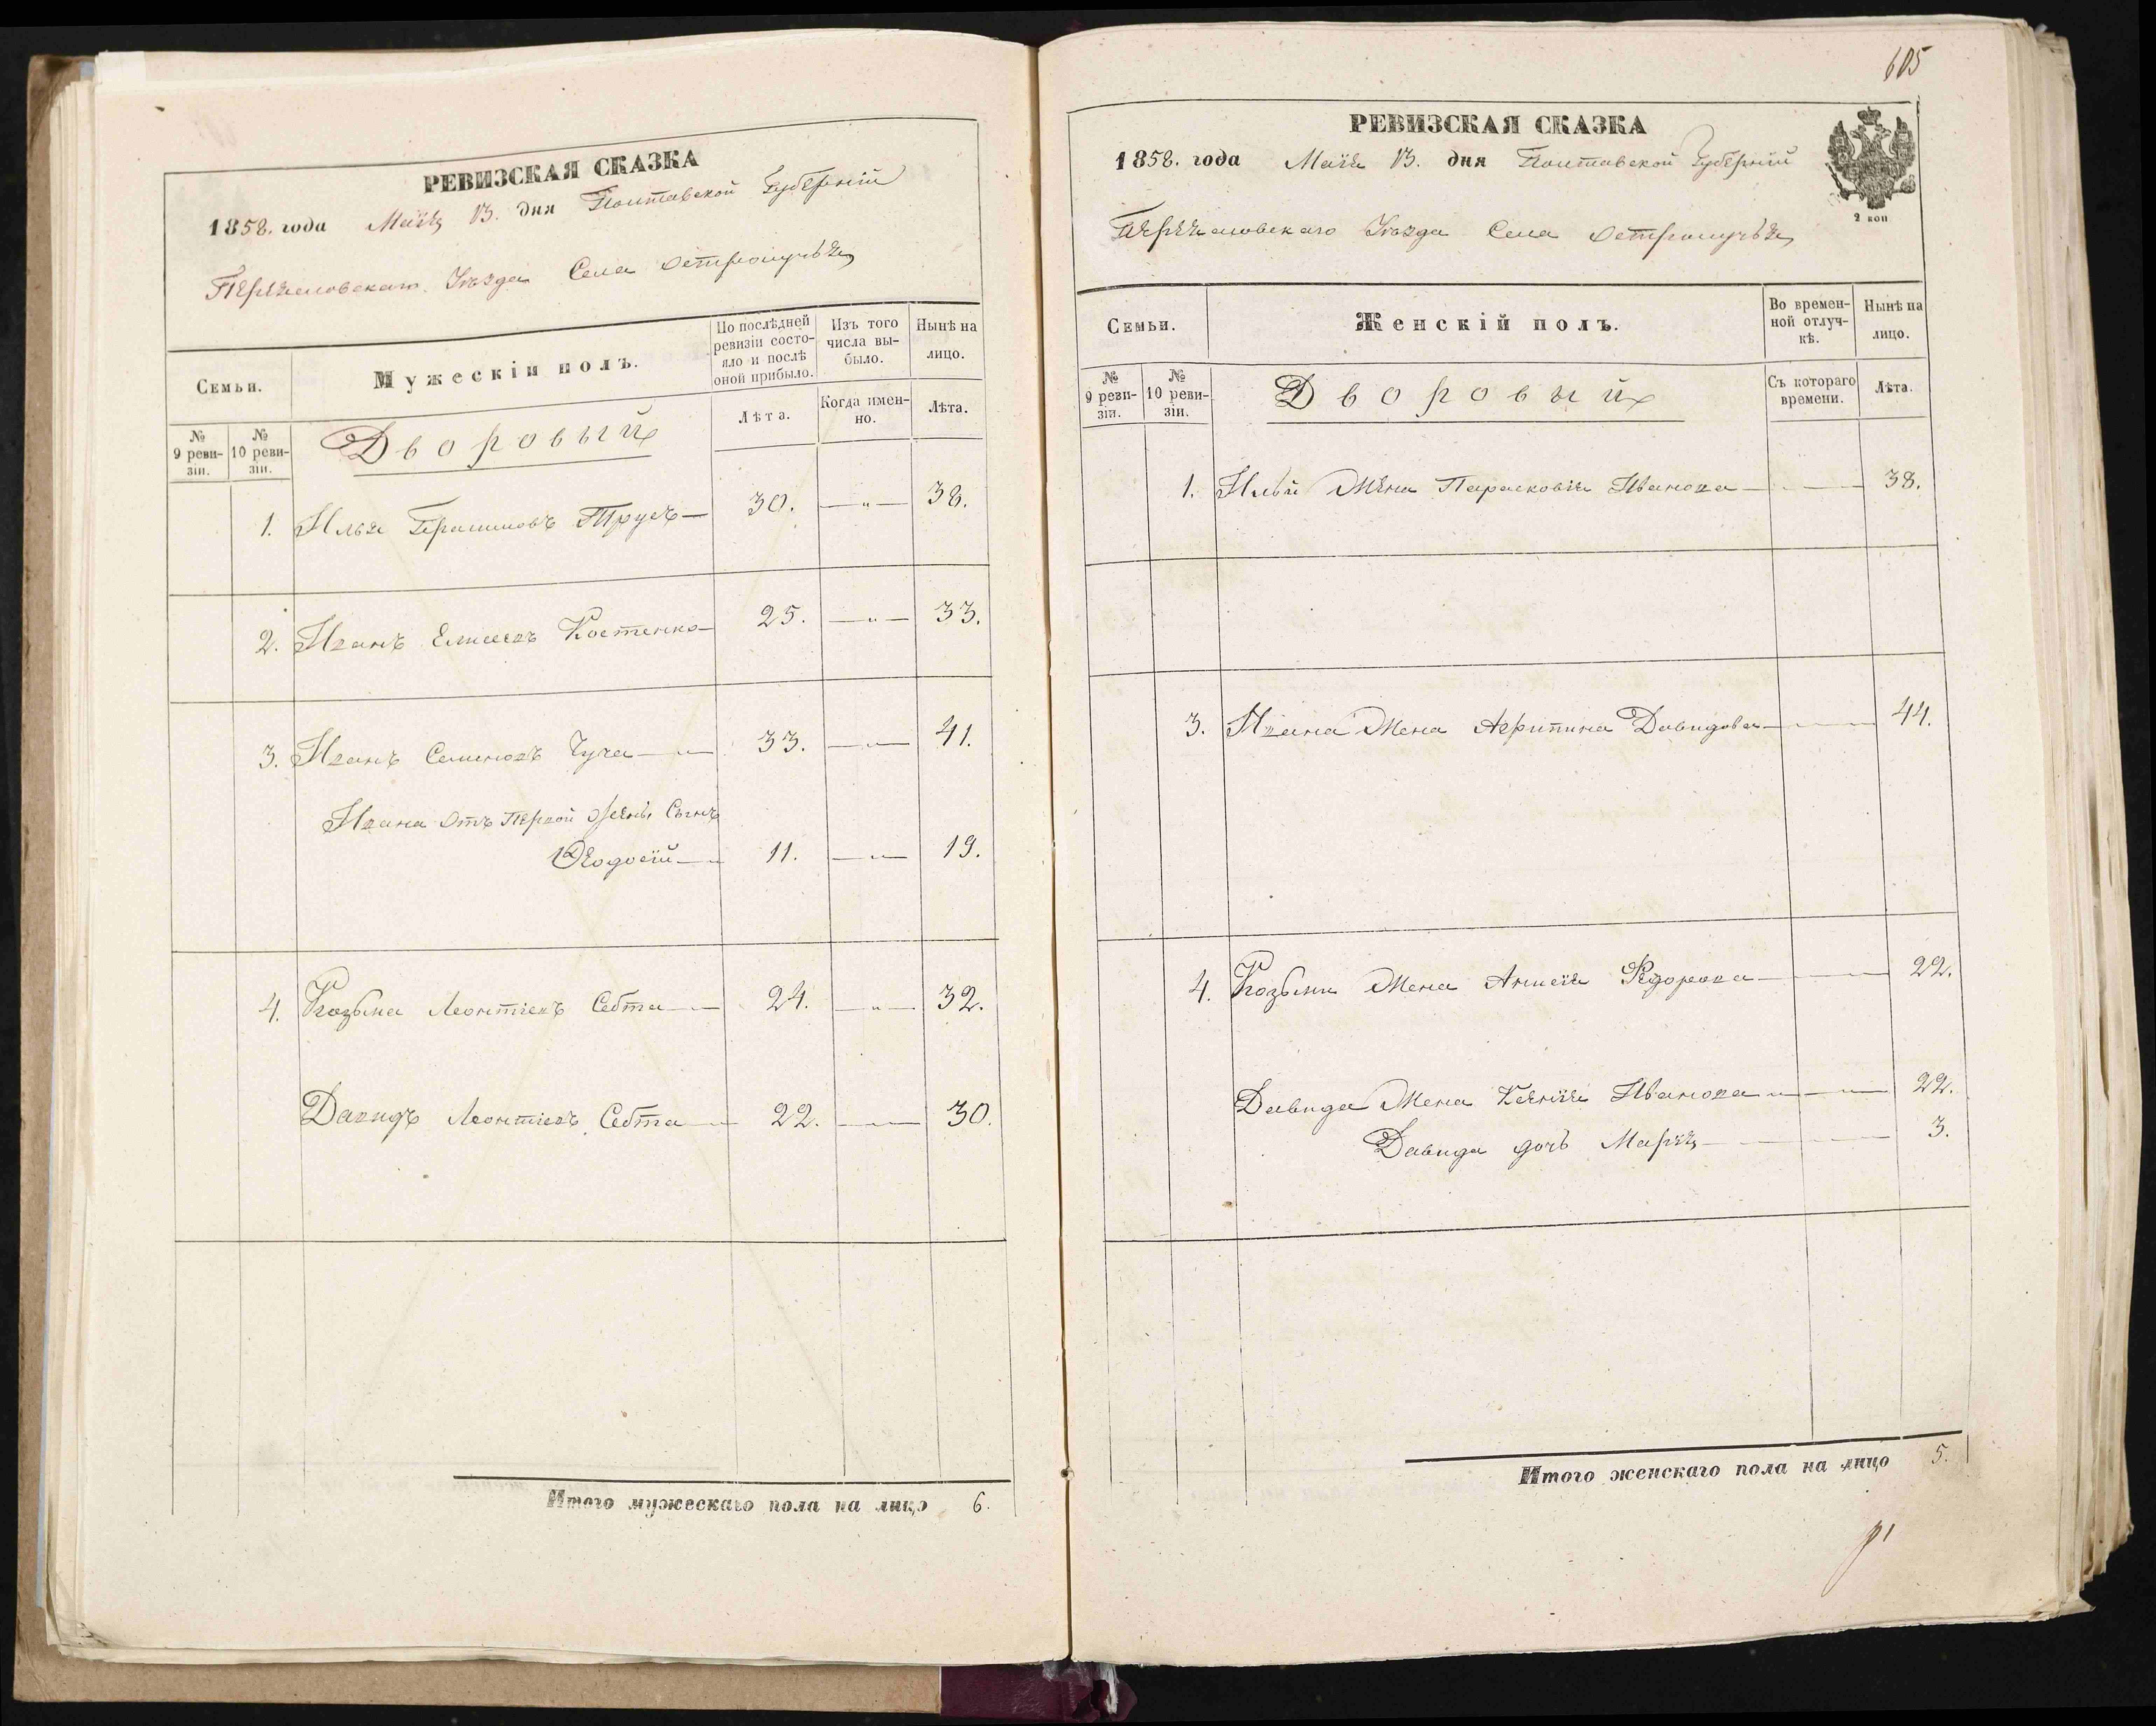 РЕВИЗСКАЯ СКАЗКА
1858. года Маія 13. дня Полтавской Губерніи
Переяславскаго Уѣзда Села Остролучья
Семьи.
Мужескій полъ.
По послѣдней ревизіи состояло и послѣ оной прибыло.
Изъ того числа выбыло.
Нынѣ на лицо.
№ 9 ревизіи.
№ 10 ревизіи.
Дворовый
Лѣта.
Когда именно.
Лѣта.
1. Илья Герасимовъ Трусъ — 30. — „ — 38.
2. Иванъ Елисеевъ Костенко — 25. — „ — 33.
3. Иванъ Семеновъ Чуча — „ — 33. — „ — 41.
Ивана отъ Первой Жены Сынъ
Ѳеодосій — „ 11. — „ — 19.
4. Козьма Леонтіевъ Севта — „ — 24. — „ — 32.
Давидъ Леонтіевъ Севта — „ 22. — „ — 30.
Итого мужескаго пола на лицо 6.
605
РЕВИЗСКАЯ СКАЗКА
1858. года Маія 13. дня Полтавской Губерніи
2 коп
Переяславскаго Уѣзда Села Остролучья
Семьи.
Женскій полъ.
Во временной отлучкѣ.
Нынѣ на лицо.
№ 9 ревизіи.
№ 10 ревизіи.
Дворовый
Съ котораго времени.
Лѣта.
1. Ильи Жена Парасковія Иванова — 38.
3. Ивана Жена Агрипина Давидова — 44.
4. Козьмы Жена Анисія Федорова — 22.
Давида Жена Ксенія Иванова „ — „ — 22.
Давида дочь Марія — 3.
Итого женскаго пола на лицо 5.